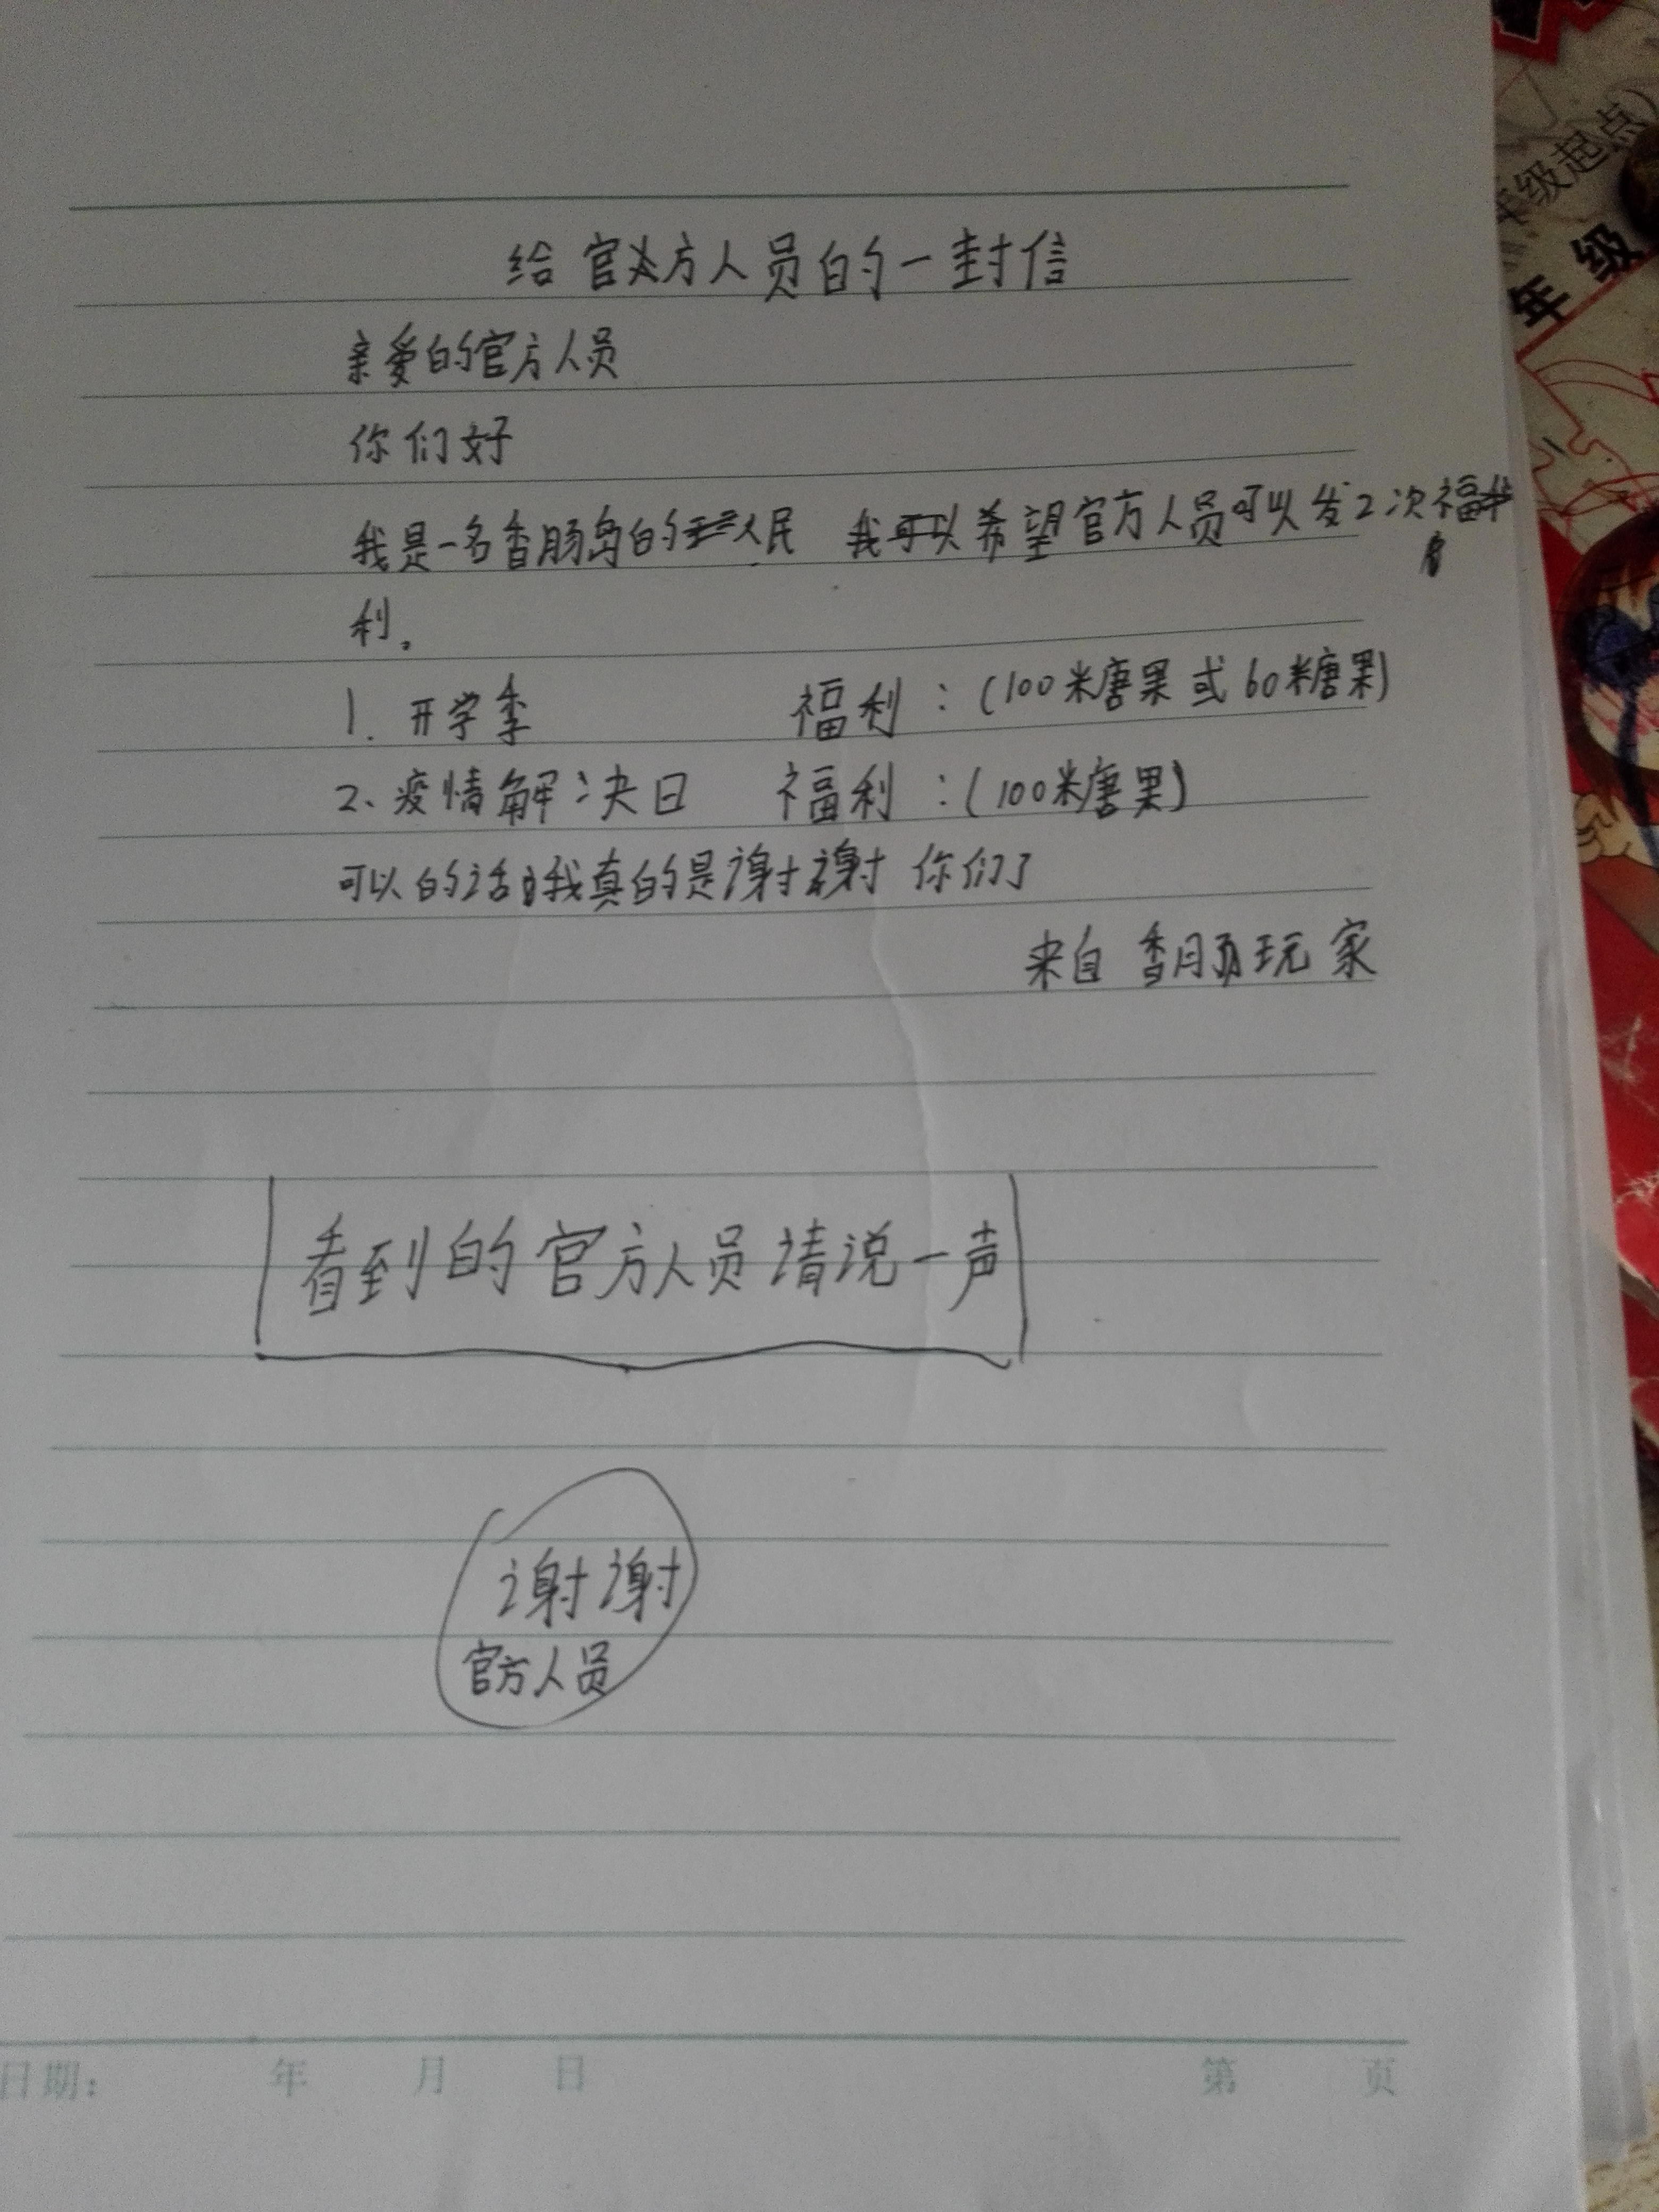 给官方人员的一封信
亲爱的官方人员
你们好
我是一名香肠岛的人民 我可以希望官方人员可以发2次福
利。
1. 开学季 福利:(100米糖果或60米糖果)
2、疫情解决日 福利:(100米糖果)
可以的话我真的是谢谢你们了
来自 香肠玩家
看到的官方人员请说一声
谢谢
官方人员
日期: 年 月 日 第 页
年级起点)
年级